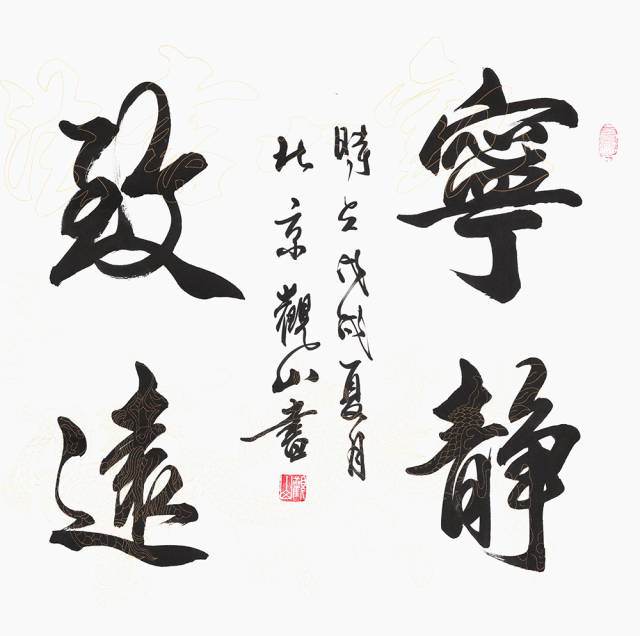 寧靜
時在戊戌夏月
北京觀山書
致遠
觀山